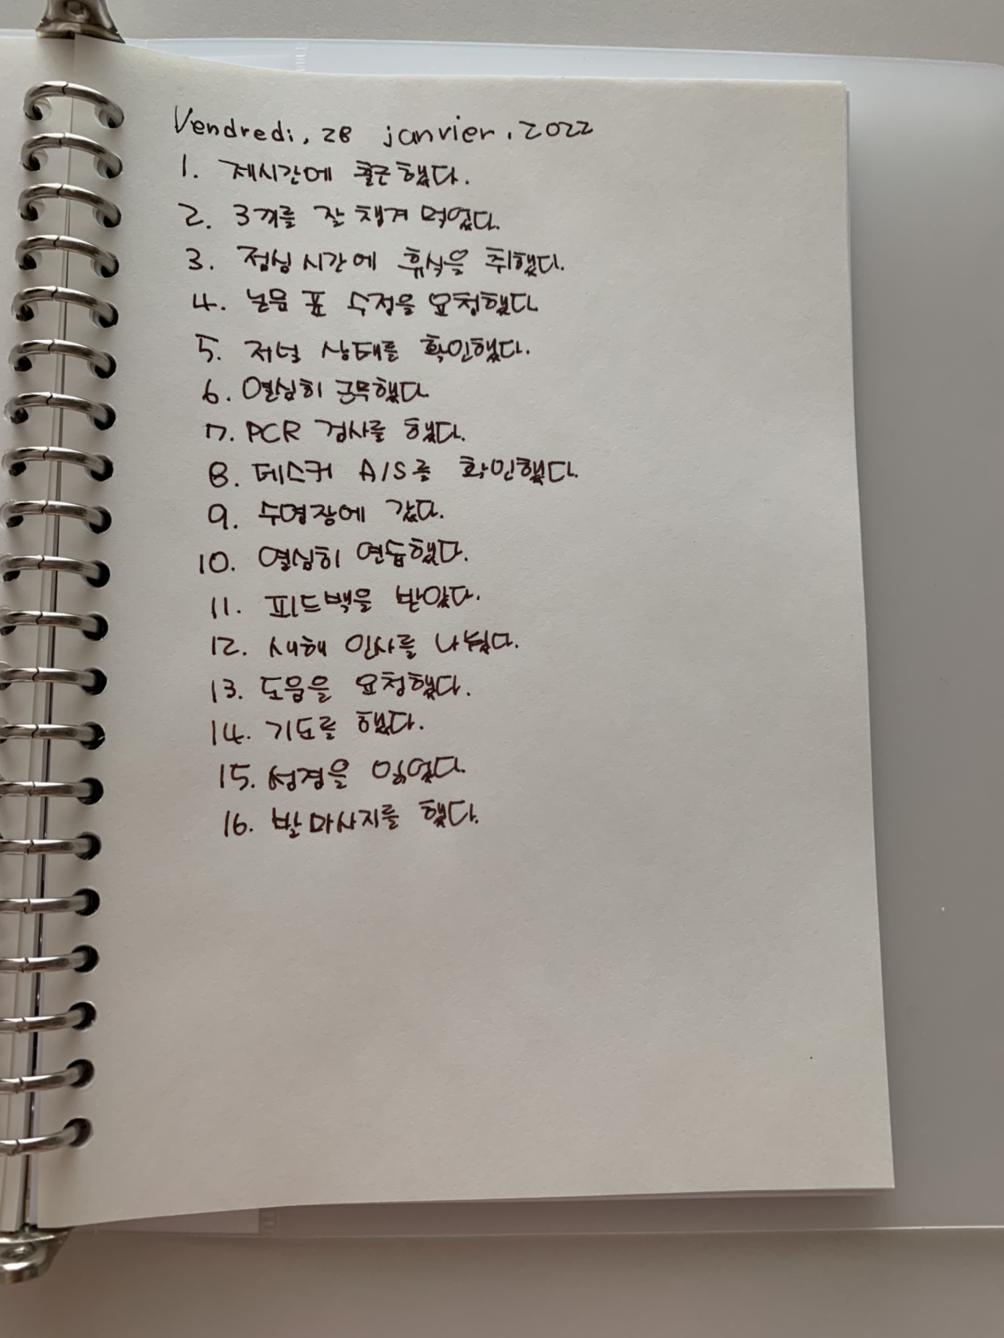 Vendredi, 28 janvier, 2022
1. 제시간에 출근했다.
2. 3끼를 잘 챙겨 먹었다.
3. 점심시간에 휴식을 취했다.
4. 표 수정을 요청했다
5. 저널 상태를 확인했다.
6. 열심히 근무했다
7. PCR 검사를 했다.
8. 데스커 A/S를 확인했다.
9. 수영장에 갔다.
10. 열심히 연습했다.
11. 피드백을 받았다.
12. 새해 인사를 나눴다.
13. 도움을 요청했다.
14. 기도를 했다.
15. 성경을 읽었다.
16. 발 마사지를 했다.